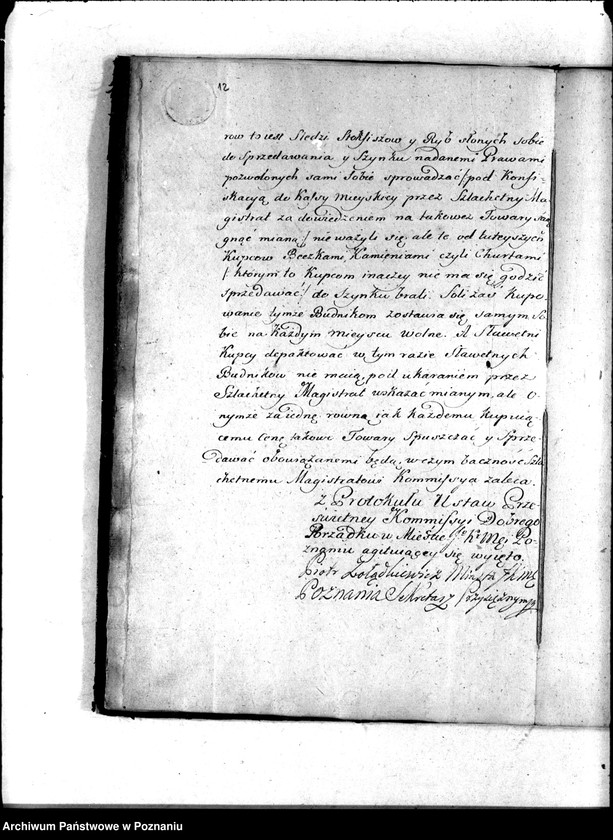 12
row to iest Sledzi Stokfiszow y Ryb słonych sobie
do Sprzedawania y Szynku nadanemi Prawami
pozwolonych sami sobie sprowadzać /: pod Konfi-
skacyą do Kassy mieyskiey przez Szlachetny Ma
gistrat za dowiedzeniem na takowez Towary
gnąć mianą :/ nie ważyli się, ale te od tuteyszych
Kupcow Beczkami, Kamieniami czyli Churtami
/: ktorym to Kupcom inaczey nie ma się godzić
sprzedawać :/ do Szynku brali. Soli zaś Kupo-
wanie tymże Budnikom zostawia się samym So
bie na każdym mieyscu wolne. A Sławetni
Kupcy depaktować w tym razie Sławetnych
Budnikow nie maią, pod ukaraniem przez
Szlachetny Magistrat wskazać mianym, ale o
nymże za iednę rowną iak każdemu kupuią-
cemu cenę takowe Towary Spuszczać y Sprze
dawać obowiązanemi będą, w czym baczność Szla
chetnemu Magistratowi Kommissya zaleca.
Z Protokułu Ustaw Prze
świetney Kommissyi Dobrego
Porządku w Mieście Po-
znaniu agituiącey się wyięto.
Piotr Miasta
Poznania Sekretarz Przysięgłym
Archiwum Państwowe w Poznaniu